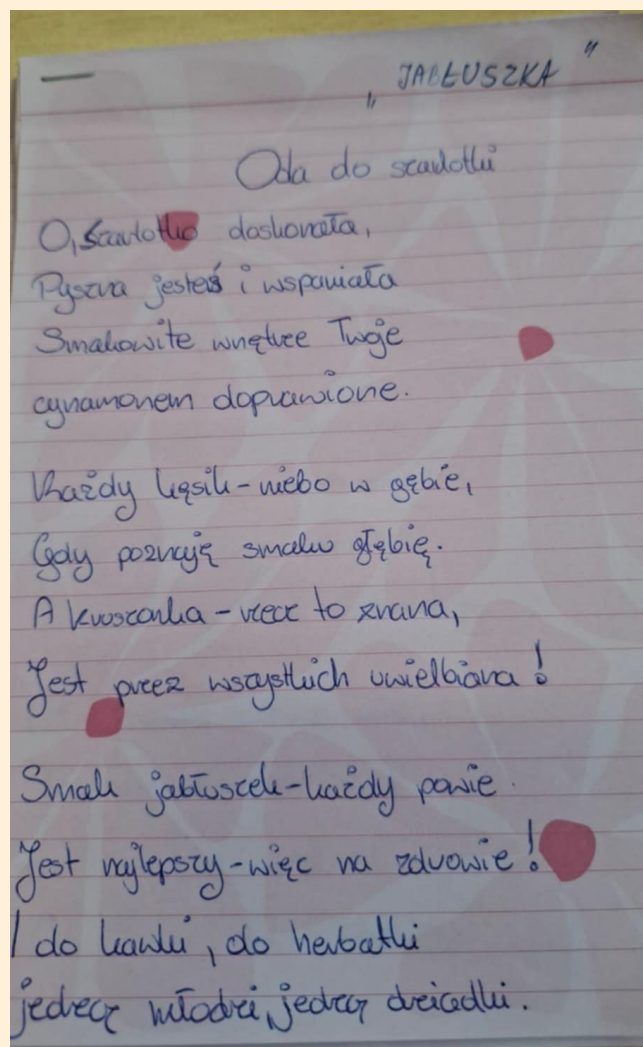 „JABŁUSZKA"
Oda do szarlotki
O, szarlotko doskonała,
Pyszna jesteś i wspaniała
Smakowite wnętrze Twoje
cynamonem doprawione.
Każdy kęsik - niebo w gębie,
Gdy poznają smaku głębię.
A kruszonka - rzecz to znana,
Jest przez wszystkich uwielbiana!
Smak jabłuszek - każdy powie
Jest najlepszy - więc na zdrowie!
I do kawki, do herbatki
jedzą młodzi, jedzą dziadki.